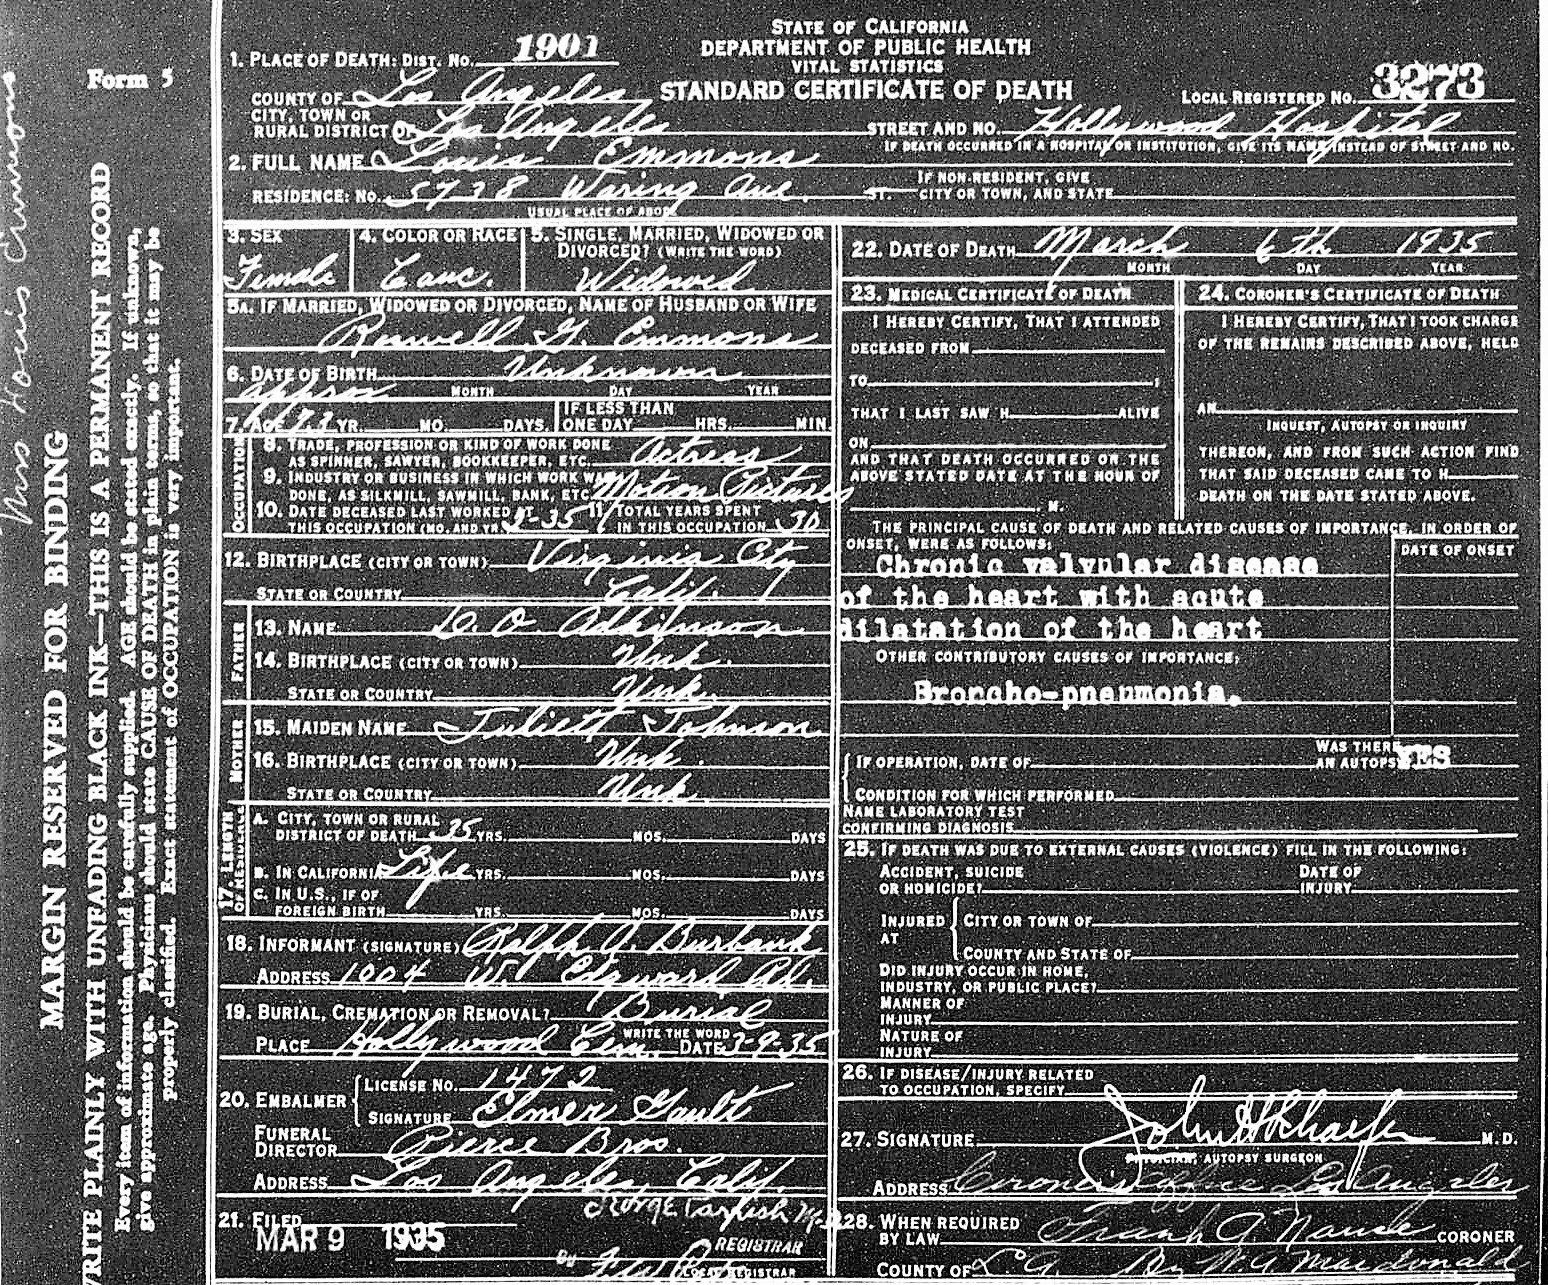 Mrs Louis Emmons
Form 5
MARGIN RESERVED FOR BINDING
WRITE PLAINLY WITH UNFADING BLACK INK—THIS IS A PERMANENT RECORD
Every item of information should be carefully supplied. AGE should be stated exactly. If unknown,
give approximate age. Physicians should state CAUSE OF DEATH in plain terms, so that it may be
properly classified. Exact statement of OCCUPATION is very important.
STATE OF CALIFORNIA
DEPARTMENT OF PUBLIC HEALTH
VITAL STATISTICS
STANDARD CERTIFICATE OF DEATH
LOCAL REGISTERED NO. 3273
1. PLACE OF DEATH: DIST. NO. 1901
COUNTY OF Los Angeles
CITY, TOWN OR
RURAL DISTRICT OF Los Angeles
STREET AND NO. Hollywood Hospital
IF DEATH OCCURRED IN A HOSPITAL OR INSTITUTION, GIVE ITS NAME INSTEAD OF STREET AND NO.
2. FULL NAME Louis Emmons
RESIDENCE: NO. 5728 Waring Ave. ST.
USUAL PLACE OF ABODE
IF NON-RESIDENT, GIVE
CITY OR TOWN, AND STATE
3. SEX
Female
4. COLOR OR RACE
Cauc.
5. SINGLE, MARRIED, WIDOWED OR
DIVORCED? (WRITE THE WORD)
Widowed
5A. IF MARRIED, WIDOWED OR DIVORCED, NAME OF HUSBAND OR WIFE
Roswell G. Emmons
6. DATE OF BIRTH Unknown
MONTH DAY YEAR
approx
7. AGE 73 YR. MO. DAYS
IF LESS THAN
ONE DAY HRS. MIN.
OCCUPATION
8. TRADE, PROFESSION OR KIND OF WORK DONE
AS SPINNER, SAWYER, BOOKKEEPER, ETC. Actress
9. INDUSTRY OR BUSINESS IN WHICH WORK WAS
DONE, AS SILKMILL, SAWMILL, BANK, ETC. Motion Pictures
10. DATE DECEASED LAST WORKED AT
THIS OCCUPATION (MO. AND YR. 2-35
11 TOTAL YEARS SPENT
IN THIS OCCUPATION 30
12. BIRTHPLACE (CITY OR TOWN) Virginia City
STATE OR COUNTRY Calif.
FATHER
13. NAME D. O. Adkinson
14. BIRTHPLACE (CITY OR TOWN) Unk.
STATE OR COUNTRY Unk.
MOTHER
15. MAIDEN NAME Juliett Johnson
16. BIRTHPLACE (CITY OR TOWN) Unk.
STATE OR COUNTRY Unk.
17. LENGTH
OF RESIDENCE
A. CITY, TOWN OR RURAL
DISTRICT OF DEATH 35 YRS. MOS. DAYS
B. IN CALIFORNIA Life YRS. MOS. DAYS
C. IN U.S., IF OF
FOREIGN BIRTH YRS. MOS. DAYS
18. INFORMANT (SIGNATURE) Ralph A. Burbank
ADDRESS 1004 W. Edgware Rd.
19. BURIAL, CREMATION OR REMOVAL? Burial
WRITE THE WORD
PLACE Hollywood Cem. DATE 3-9-35
20. EMBALMER
LICENSE NO. 1472
SIGNATURE Elmer Gault
FUNERAL
DIRECTOR Pierce Bros.
ADDRESS Los Angeles, Calif.
21. FILED
MAR 9 1935
George Parrish M.D.
REGISTRAR
By
LOCAL REGISTRAR
22. DATE OF DEATH March 6th 1935
MONTH DAY YEAR
23. MEDICAL CERTIFICATE OF DEATH
I HEREBY CERTIFY, THAT I ATTENDED
DECEASED FROM
TO ;
THAT I LAST SAW H ALIVE
ON
AND THAT DEATH OCCURRED ON THE
ABOVE STATED DATE AT THE HOUR OF
M.
24. CORONER'S CERTIFICATE OF DEATH
I HEREBY CERTIFY, THAT I TOOK CHARGE
OF THE REMAINS DESCRIBED ABOVE, HELD
AN
INQUEST, AUTOPSY OR INQUIRY
THEREON, AND FROM SUCH ACTION FIND
THAT SAID DECEASED CAME TO H
DEATH ON THE DATE STATED ABOVE.
THE PRINCIPAL CAUSE OF DEATH AND RELATED CAUSES OF IMPORTANCE, IN ORDER OF
ONSET, WERE AS FOLLOWS:
DATE OF ONSET
Chronic valvular disease
of the heart with acute
dilatation of the heart
OTHER CONTRIBUTORY CAUSES OF IMPORTANCE:
Broncho-pneumonia.
IF OPERATION, DATE OF
WAS THERE
AN AUTOPSY YES
CONDITION FOR WHICH PERFORMED
NAME LABORATORY TEST
CONFIRMING DIAGNOSIS
25. IF DEATH WAS DUE TO EXTERNAL CAUSES (VIOLENCE) FILL IN THE FOLLOWING:
ACCIDENT, SUICIDE
OR HOMICIDE?
DATE OF
INJURY
INJURED
AT
CITY OR TOWN OF
COUNTY AND STATE OF
DID INJURY OCCUR IN HOME,
INDUSTRY, OR PUBLIC PLACE?
MANNER OF
INJURY
NATURE OF
INJURY
26. IF DISEASE/INJURY RELATED
TO OCCUPATION, SPECIFY
27. SIGNATURE John H Schaefer M.D.
PHYSICIAN, AUTOPSY SURGEON
ADDRESS Coroner's Office Los Angeles
28. WHEN REQUIRED
BY LAW Frank A Nance CORONER
COUNTY OF L.A. By W A Macdonald